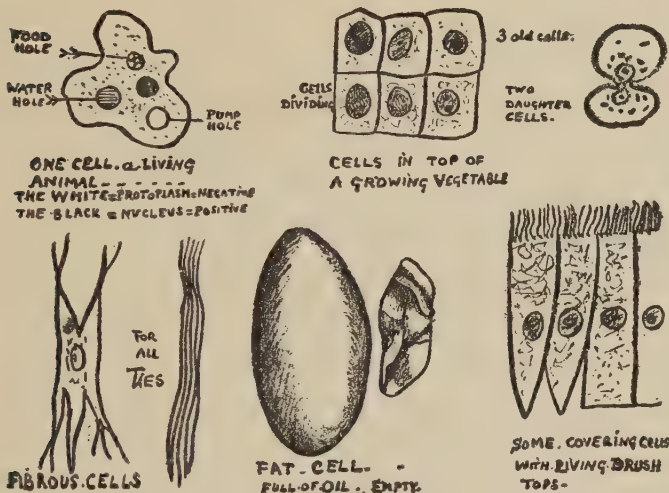 FOOD
HOLE
WATER
HOLE
PUMP
HOLE
ONE CELL. a LIVING
ANIMAL
THE WHITE = PROTOPLASM = NEGATIVE
THE BLACK = NUCLEUS = POSITIVE
CELLS
DIVIDING
CELLS IN TOP OF
A GROWING VEGETABLE
3 old cells.
TWO
DAUGHTER
CELLS.
FOR
ALL
TIES
FIBROUS. CELLS
FAT. CELL.
FULL. OF OIL. EMPTY.
SOME. COVERING CELLS
WITH. LIVING. BRUSH
TOPS-